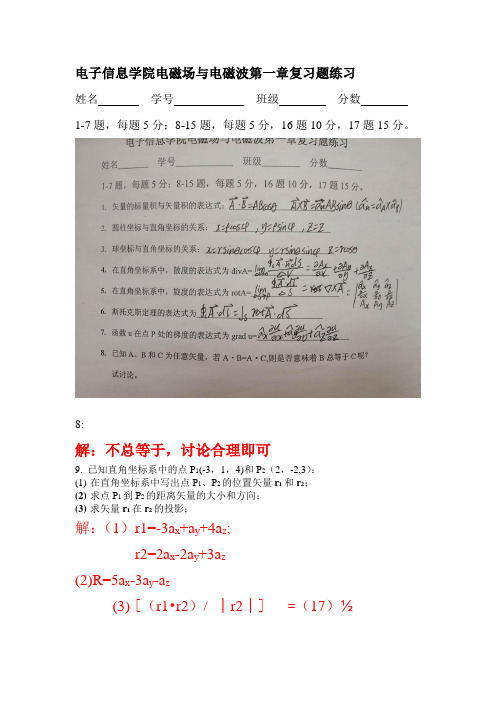 电子信息学院电磁场与电磁波第一章复习题练习
姓名 学号 班级 分数
1-7题，每题5分；8-15题，每题5分，16题10分，17题15分。
电子信息学院电磁场与电磁波第一章复习题练习
姓名 学号 班级 分数
1-7题，每题5分；8-15题，每题5分，16题10分，17题15分。
1. 矢量的标量积与矢量积的表达式：A·B=ABcosθ A×B=anABsinθ
2. 圆柱坐标与直角坐标的关系：x=ρcosφ，y=ρsinφ，z=z
3. 球坐标与直角坐标的关系：x=rsinθcosφ y=rsinθsinφ z=rcosθ
4. 在直角坐标系中，散度的表达式为 divA=
5. 在直角坐标系中，旋度的表达式为 rotA=
6. 斯托克斯定理的表达式为
7. 函数u在点P处的梯度的表达式为 grad u=
8. 已知A、B和C为任意矢量，若 A·B=A·C,则是否意味着B总等于C呢？
试讨论。
8:
解：不总等于，讨论合理即可
9. 已知直角坐标系中的点P1(-3，1，4)和P2（2，-2,3）：
(1) 在直角坐标系中写出点P1、P2的位置矢量r1和r2；
(2) 求点P1到P2的距离矢量的大小和方向；
(3) 求矢量r1在r2的投影；
解：（1）r1=-3ax+ay+4az;
r2=2ax-2ay+3az
(2)R=5ax-3ay-az
(3)［（r1•r2）/ │r2│］ =（17）½